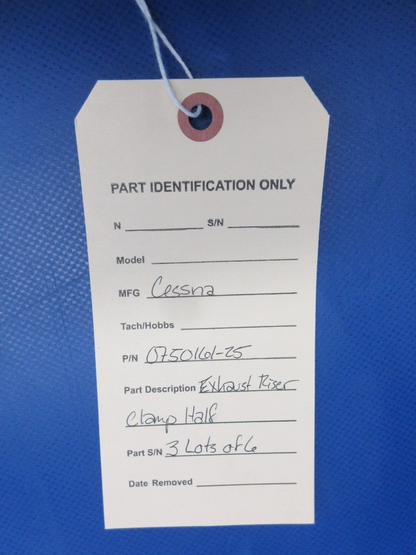 PART IDENTIFICATION ONLY
N S/N
Model
MFG Cessna
Tach/Hobbs
P/N 0750161-25
Part Description Exhaust Riser
Clamp Half
Part S/N 3 Lots of 6
Date Removed